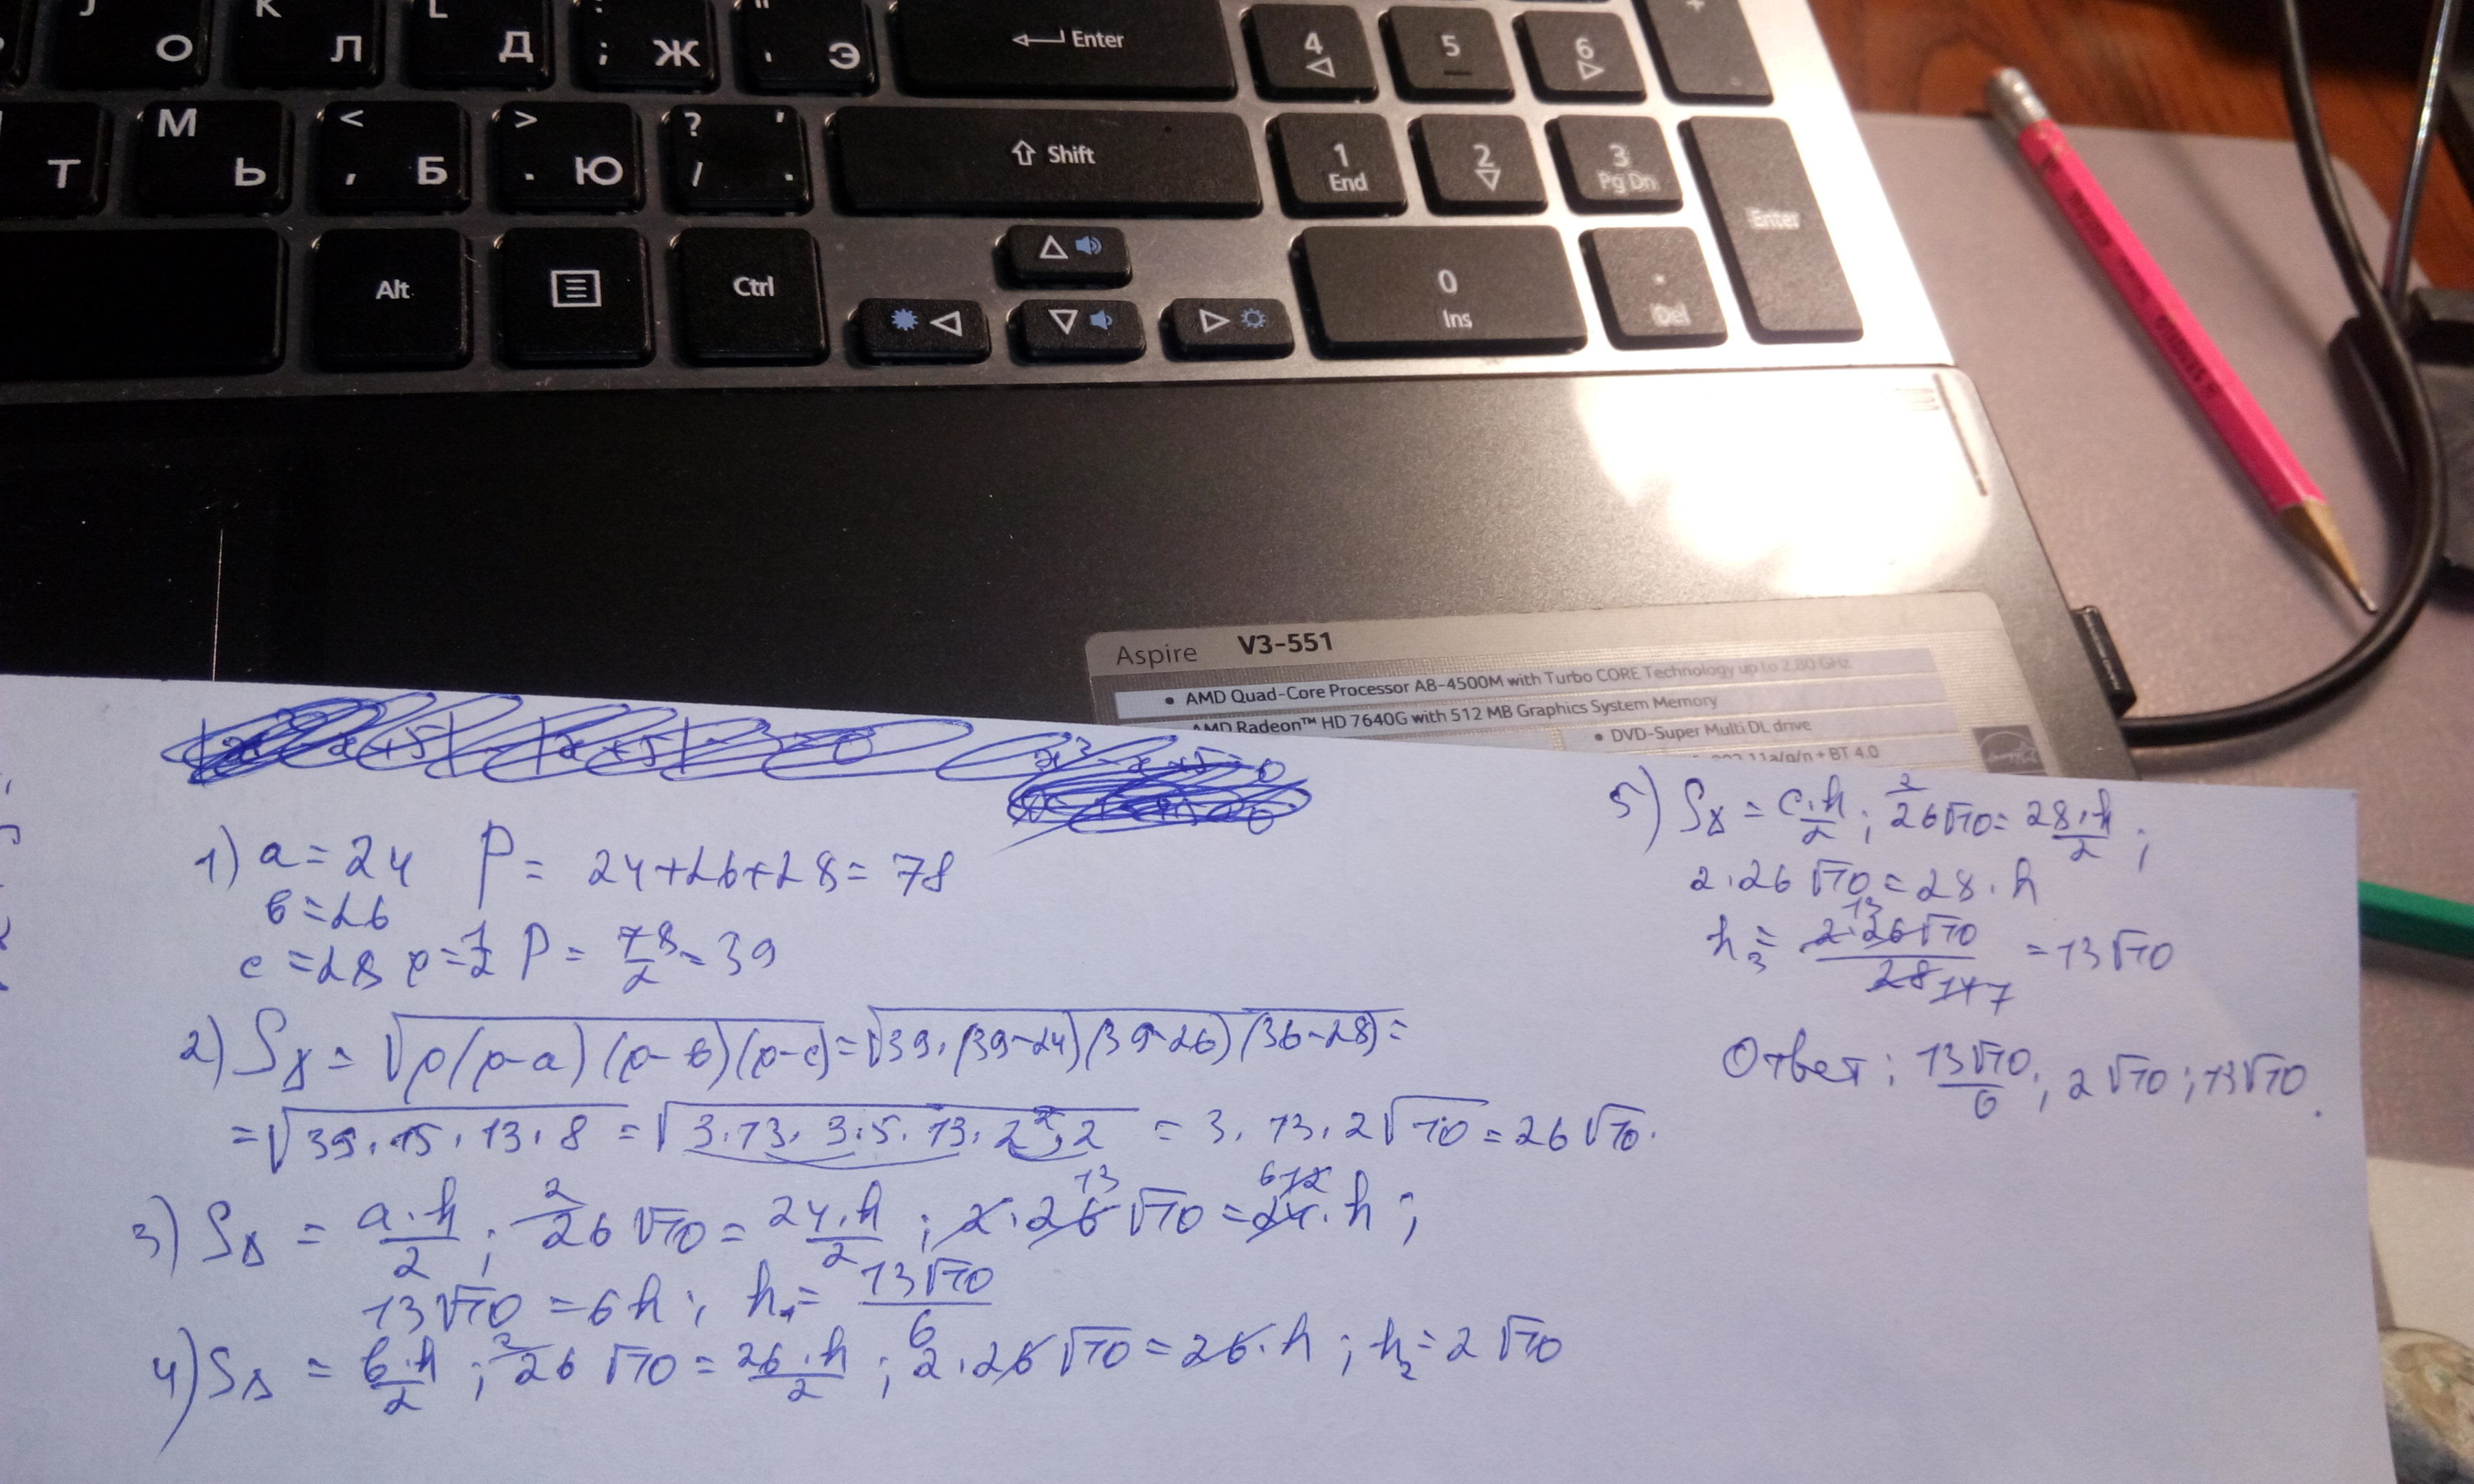 J K L : "
О Л Д ; Ж ' Э Enter 4 5 6 +
М < > ? '
Т Ь , Б . Ю / . Shift 1 End 2 3 Pg Dn Enter
Alt Ctrl 0 Ins . Del
Aspire V3-551
• AMD Quad-Core Processor A8-4500M with Turbo CORE Technology up to 2.80 GHz
AMD Radeon™ HD 7640G with 512 MB Graphics System Memory
• DVD-Super Multi DL drive
11a/g/n + BT 4.0
1) a = 24 P = 24+26+28 = 78
в = 26
c = 28 p = 1/2 P = 78/2 = 39
2) S∆ = √p(p-a)(p-в)(p-c) = √39·(39-24)(39-26)(36-28) =
= √39·15·13·8 = √3·13·3·5·13·2²·2 = 3·13·2√10 = 26√10.
3) S∆ = a·h/2 ; 2/ 26√10 = 24·h/2 ; 2·26 13 √10 = 24 12 6 ·h ;
13√10 = 6h ; h₁ = 13√10/6
4) S∆ = в·h/2 ; 2/ 26√10 = 26·h/2 ; 2·26√10 = 26·h ; h₂ = 2√10
5) S∆ = c·h/2 ; 2/ 26√10 = 28·h/2 ;
2·26√10 = 28·h
h₃ = 2·26 13 √10 / 28 14 7 = 13√10
Ответ : 13√10/6 ; 2√10 ; 13√10.